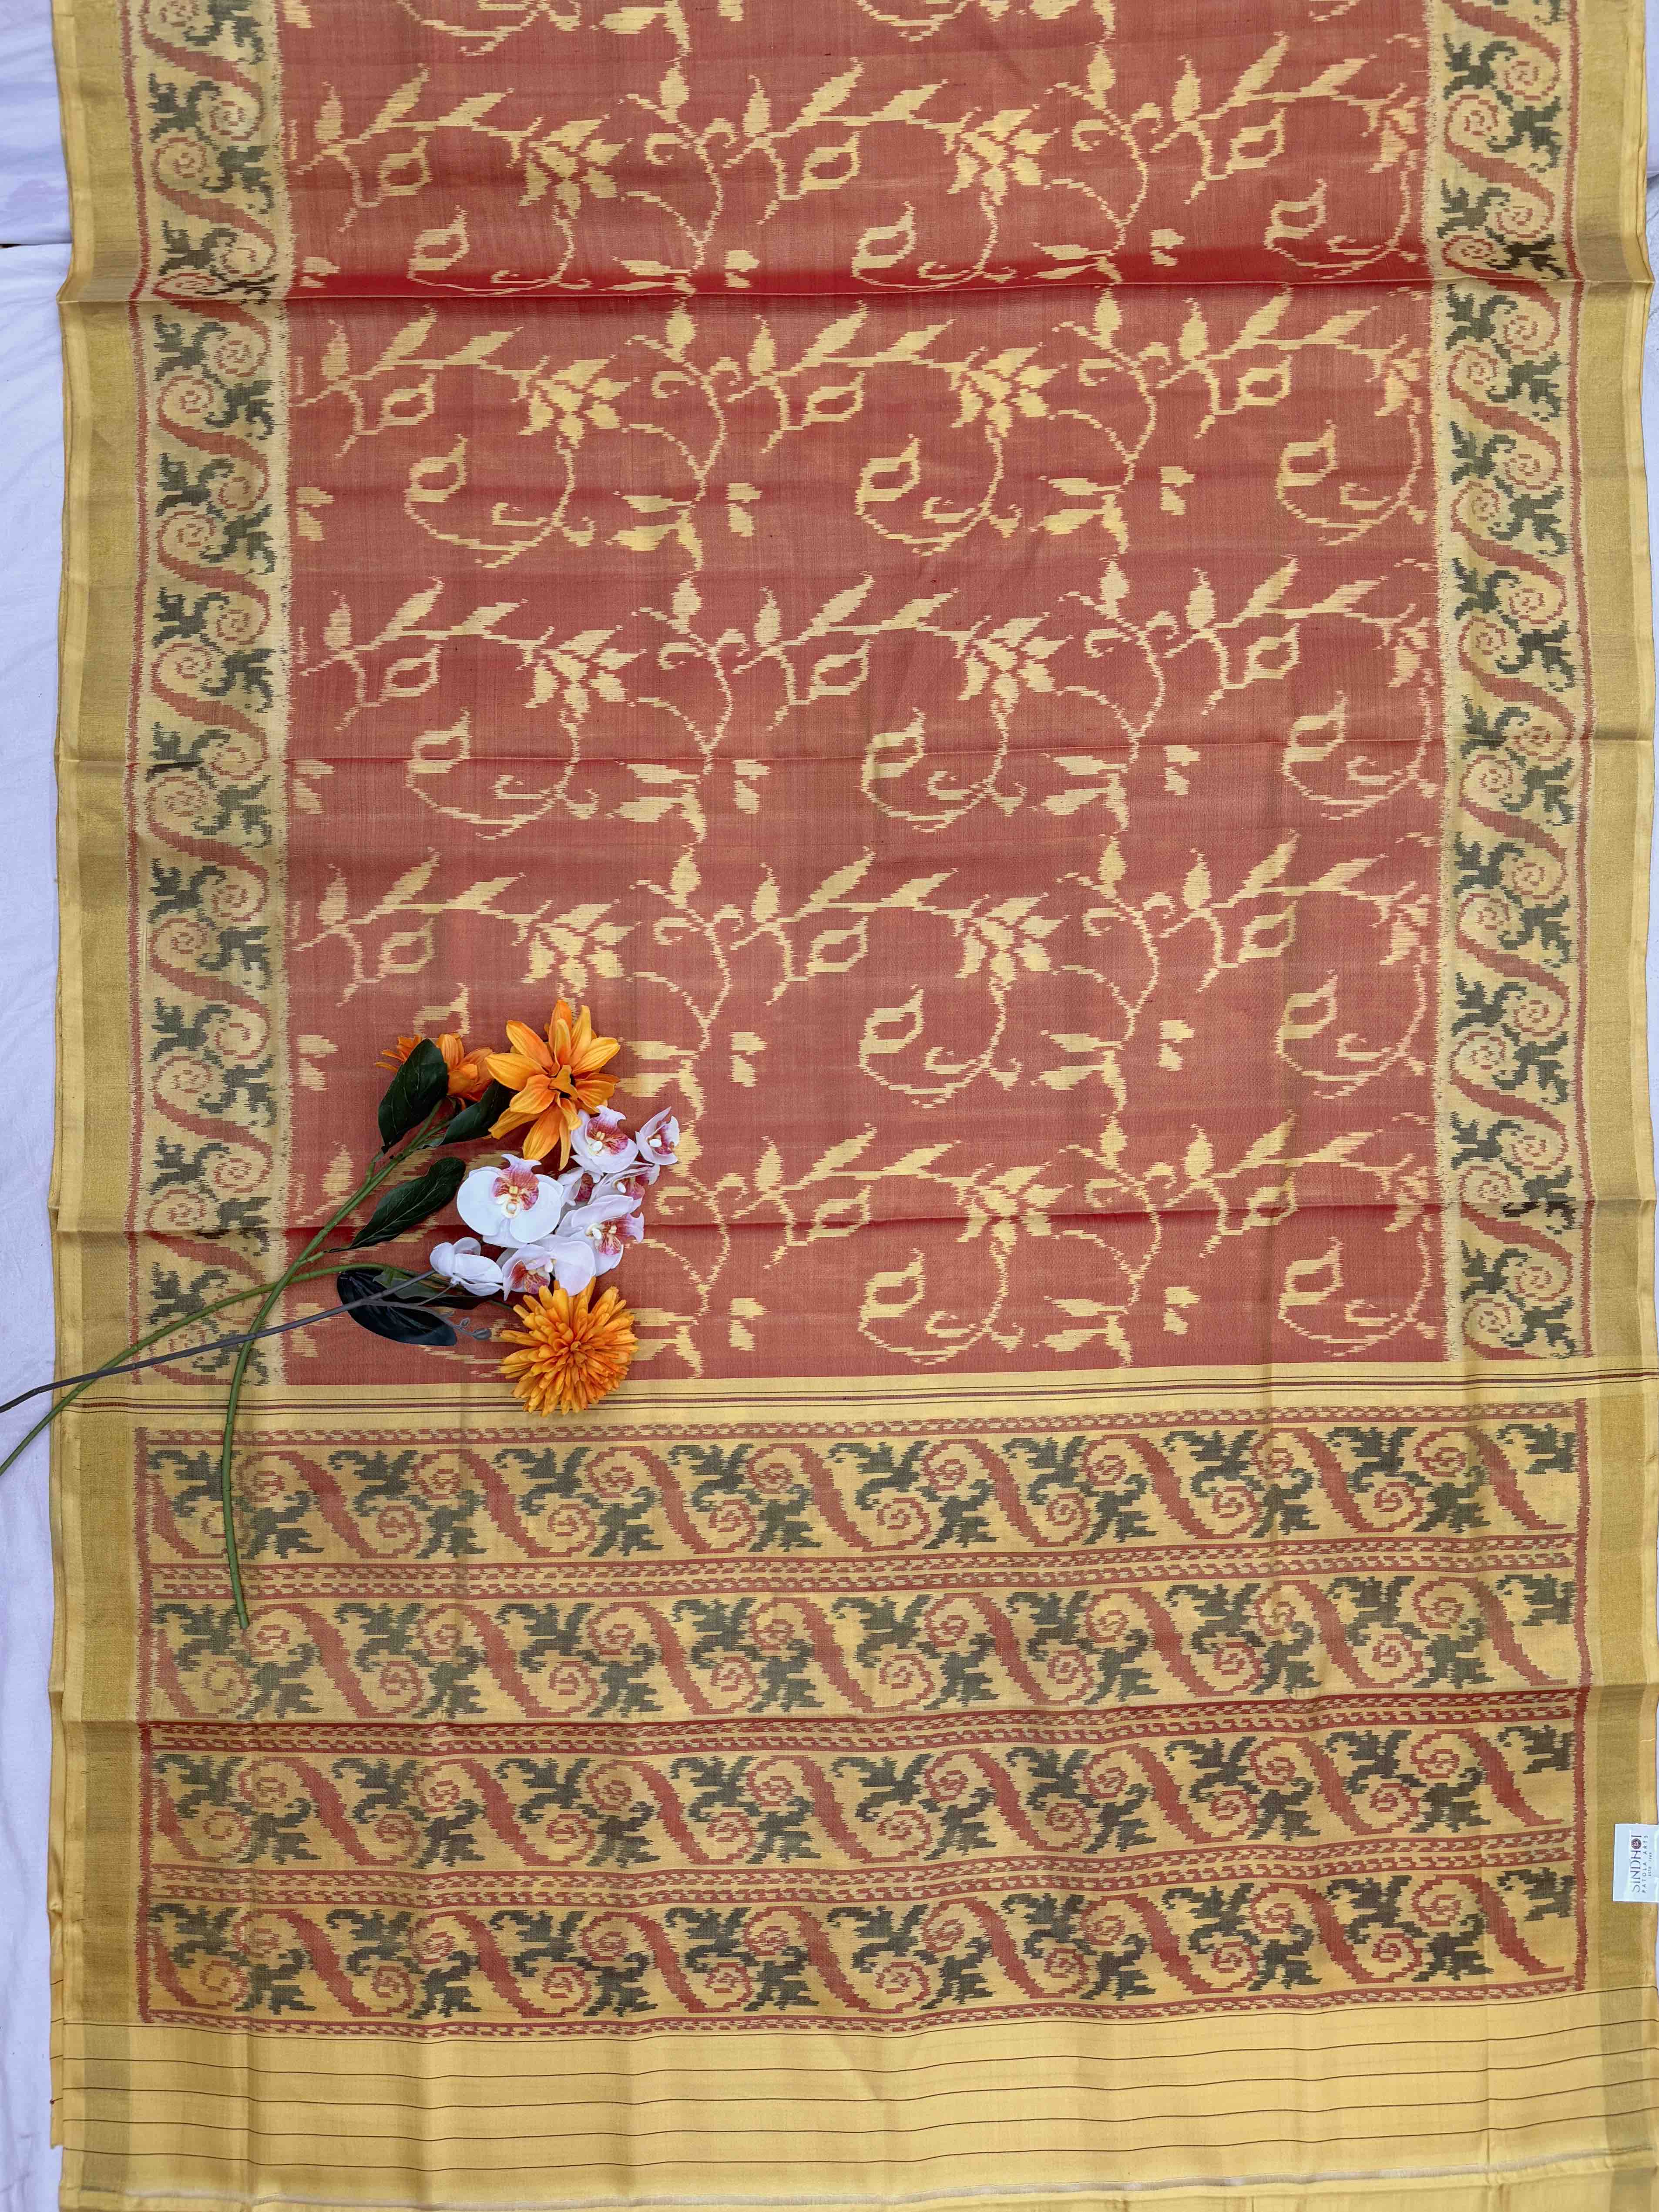 SINDHOI
PATOLA ARTS